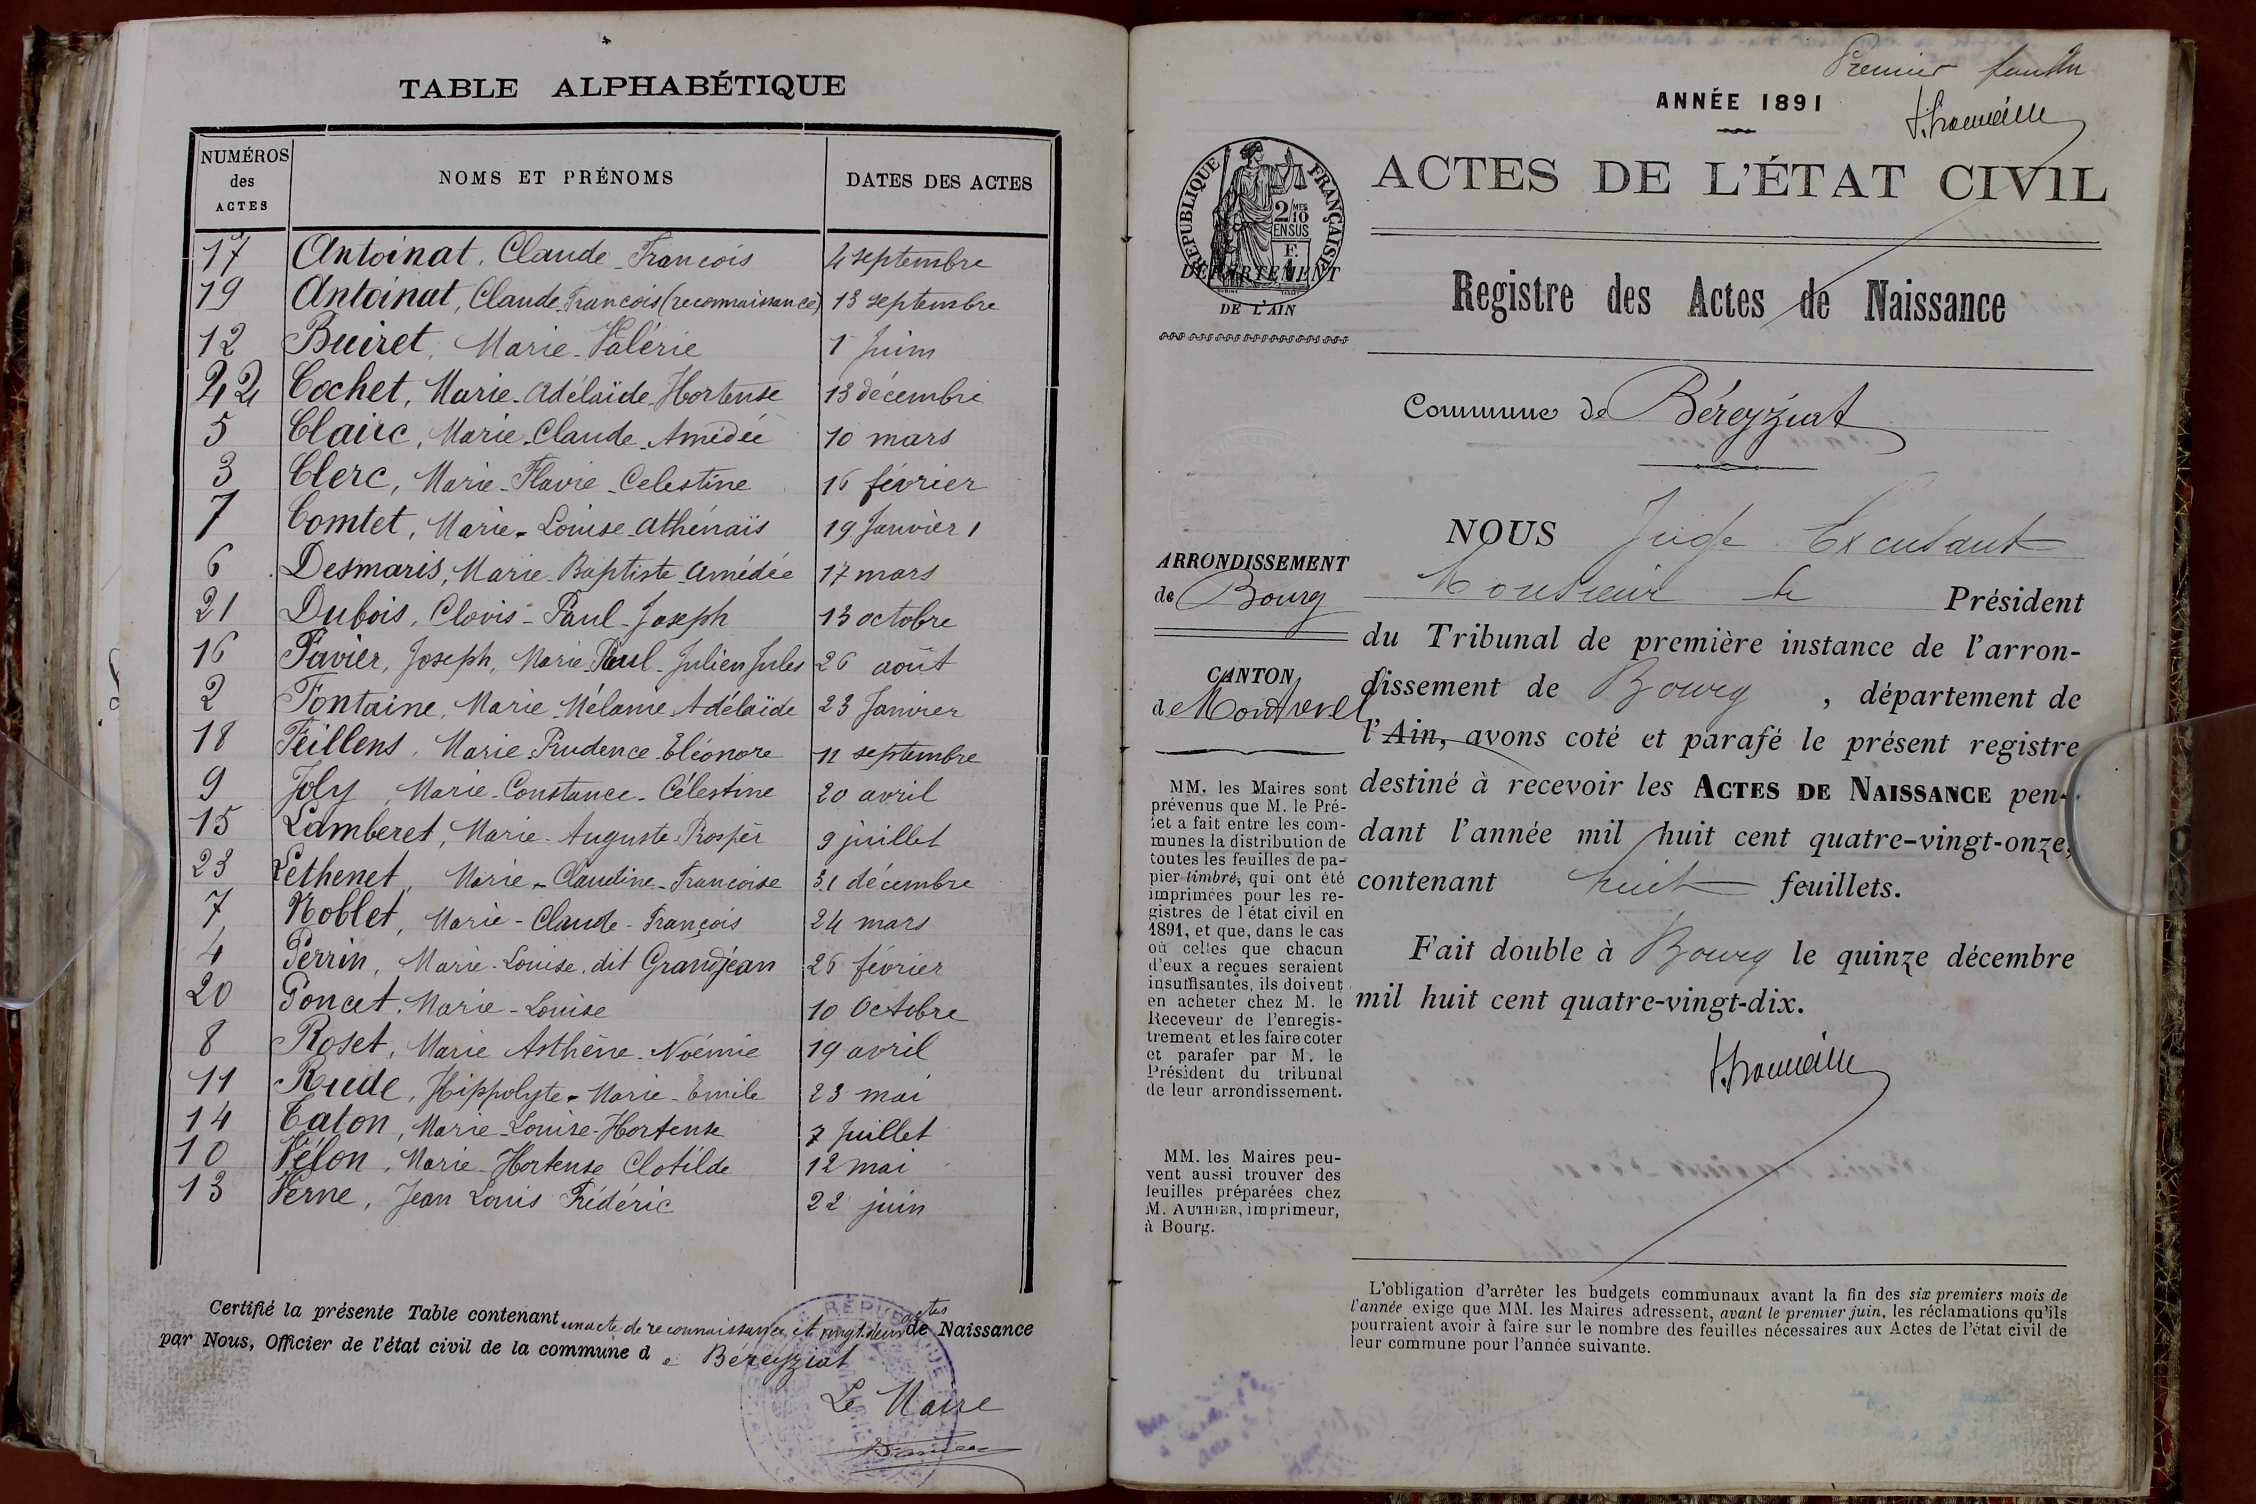 TABLE ALPHABÉTIQUE
NUMÉROS des ACTES NOMS ET PRÉNOMS DATES DES ACTES
17 Antoinat, Claude-François 4 septembre
19 Antoinat, Claude François (reconnaissance) 13 septembre
12 Buiret, Marie-Valérie 1 Juin
22 Cochet, Marie-Adélaïde-Hortense 13 décembre
5 Claire, Marie-Claude-Amédée 10 mars
3 Clerc, Marie-Flavie-Celestine 16 février
7 Comtet, Marie-Louise-Athénaïs 19 Janvier 1
6 Desmaris, Marie-Baptiste-Amédée 17 mars
21 Dubois, Clovis-Paul-Joseph 13 octobre
16 Favier, Joseph, Marie-Paul-Julien Jules 26 août
2 Fontaine, Marie-Mélanie-Adélaïde 23 Janvier
18 Feillens, Marie-Prudence-Eléonore 11 septembre
9 Joly, Marie-Constance-Célestine 20 avril
15 Lamberet, Marie-Auguste-Prosper 9 juillet
23 Lethenet, Marie-Claudine-Francoise 31 décembre
7 Noblet, Marie-Claude-François 24 mars
4 Perrin, Marie-Louise, dit Grandjean 26 février
20 Poncet, Marie-Louise 10 Octobre
8 Roset, Marie Asthène-Noémie 19 avril
11 Rude, Hippolyte-Marie-Emile 23 mai
14 Caton, Marie-Louise-Hortense 7 Juillet
10 Vélon, Marie-Hortense Clotilde 12 mai
13 Verne, Jean Louis Frédéric 22 juin
Certifié la présente Table contenant un acte de reconnaissance et vingt deux actes de Naissance
par Nous, Officier de l'état civil de la commune de Béreyziat
Le Maire
Premier feuillet
ANNÉE 1891
RÉPUBLIQUE FRANÇAISE
2/10 MES
EN SUS
F.
DÉPARTEMENT
DE L'AIN
ACTES DE L'ÉTAT CIVIL
Registre des Actes de Naissance
Commune de Béreyziat
ARRONDISSEMENT
de Bourg
CANTON
de Montrevel
MM. les Maires sont
prévenus que M. le Pré-
fet a fait entre les com-
munes la distribution de
toutes les feuilles de pa-
pier timbré, qui ont été
imprimées pour les re-
gistres de l'état civil en
1891, et que, dans le cas
où celles que chacun
d'eux a reçues seraient
insuffisantes, ils doivent
en acheter chez M. le
Receveur de l'enregis-
trement et les faire coter
et parafer par M. le
Président du tribunal
de leur arrondissement.
MM. les Maires peu-
vent aussi trouver des
feuilles préparées chez
M. AUTHIER, imprimeur,
à Bourg.
NOUS Juge Excusant
Monsieur le Président
du Tribunal de première instance de l'arron-
dissement de Bourg, département de
l'Ain, avons coté et parafé le présent registre
destiné à recevoir les ACTES DE NAISSANCE pen-
dant l'année mil huit cent quatre-vingt-onze,
contenant huit feuillets.
Fait double à Bourg le quinze décembre
mil huit cent quatre-vingt-dix.
L'obligation d'arrêter les budgets communaux avant la fin des six premiers mois de
l'année exige que MM. les Maires adressent, avant le premier juin, les réclamations qu'ils
pourraient avoir à faire sur le nombre des feuilles nécessaires aux Actes de l'état civil de
leur commune pour l'année suivante.